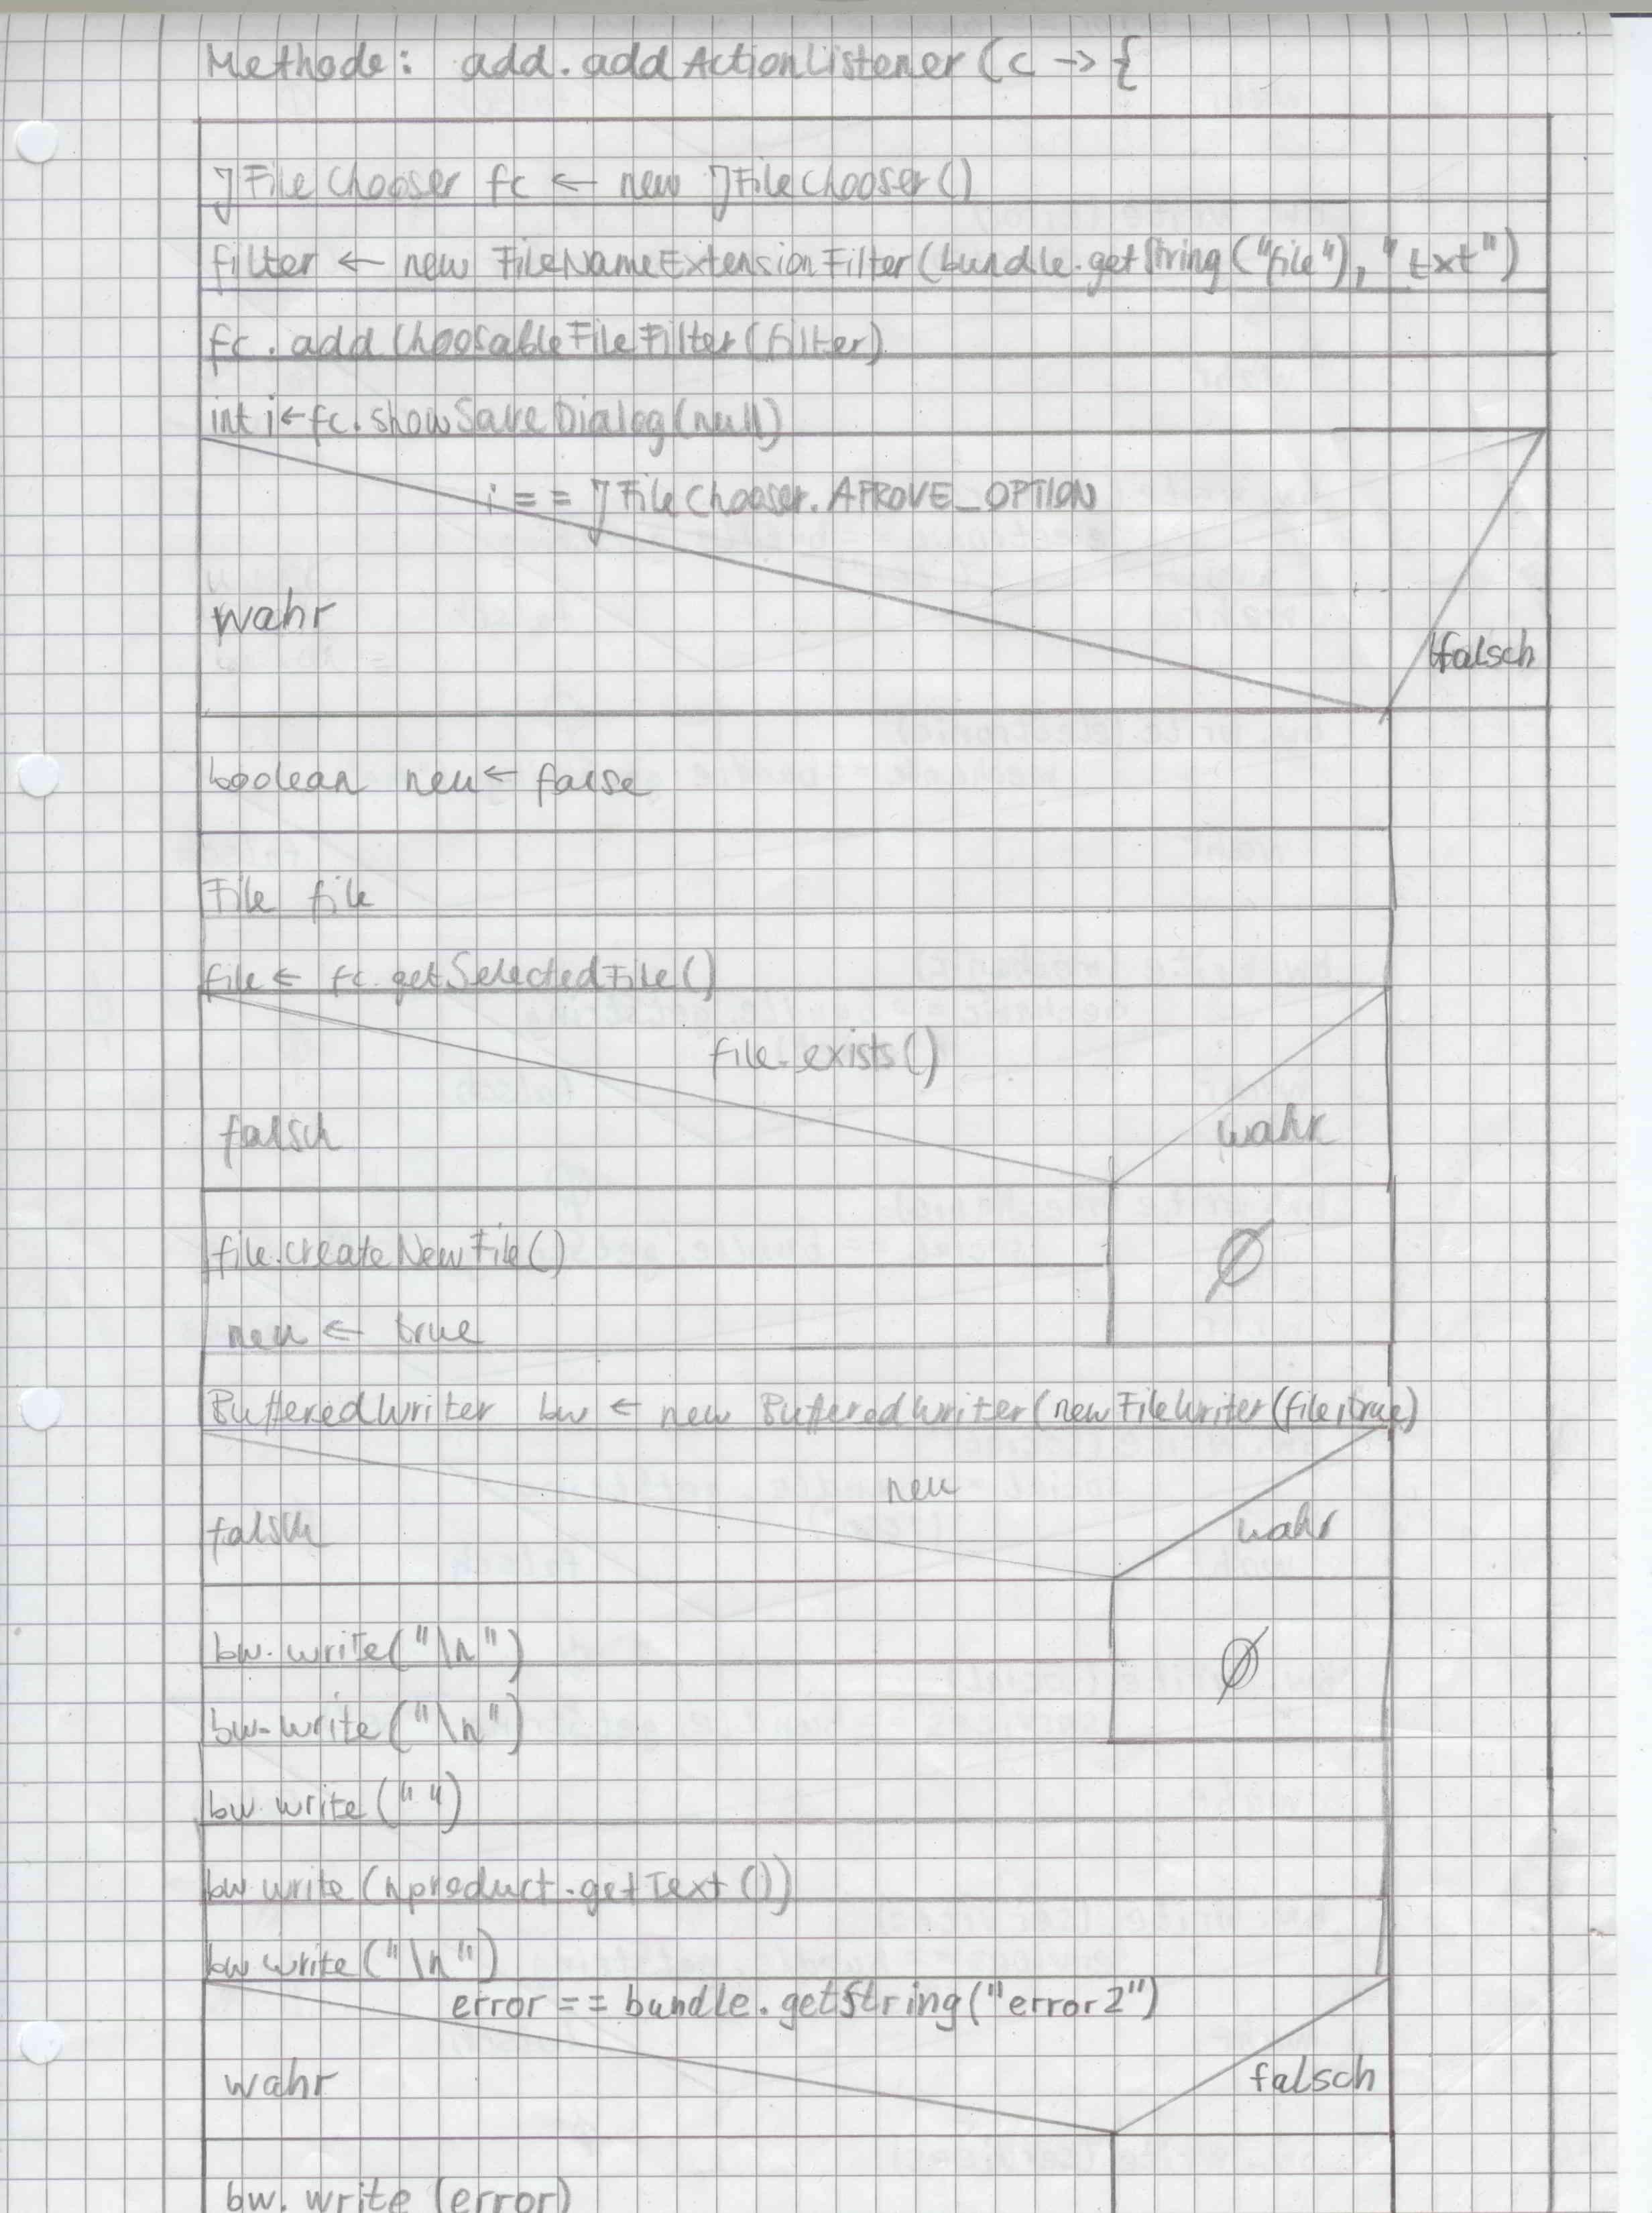 Methode: add.addActionListener(c -> {
JFileChooser fc ← new JFileChooser()
filter ← new FileNameExtensionFilter(bundle.getString("file"), "txt")
fc.addChoosableFileFilter(filter)
int i ← fc.showSaveDialog(null)
i == JFileChooser.APROVE_OPTION
wahr
falsch
boolean neu ← false
File file
file ← fc.getSelectedFile()
file.exists()
falsch wahr
file.createNewFile()
Ø
neu ← true
BufferedWriter bw ← new BufferedWriter(new FileWriter(file,true)
neu
falsch wahr
bw.write("\n")
Ø
bw.write("\n")
bw.write(" ")
bw.write(nproduct.getText())
bw.write("\n")
error == bundle.getString("error2")
wahr falsch
bw.write(error)